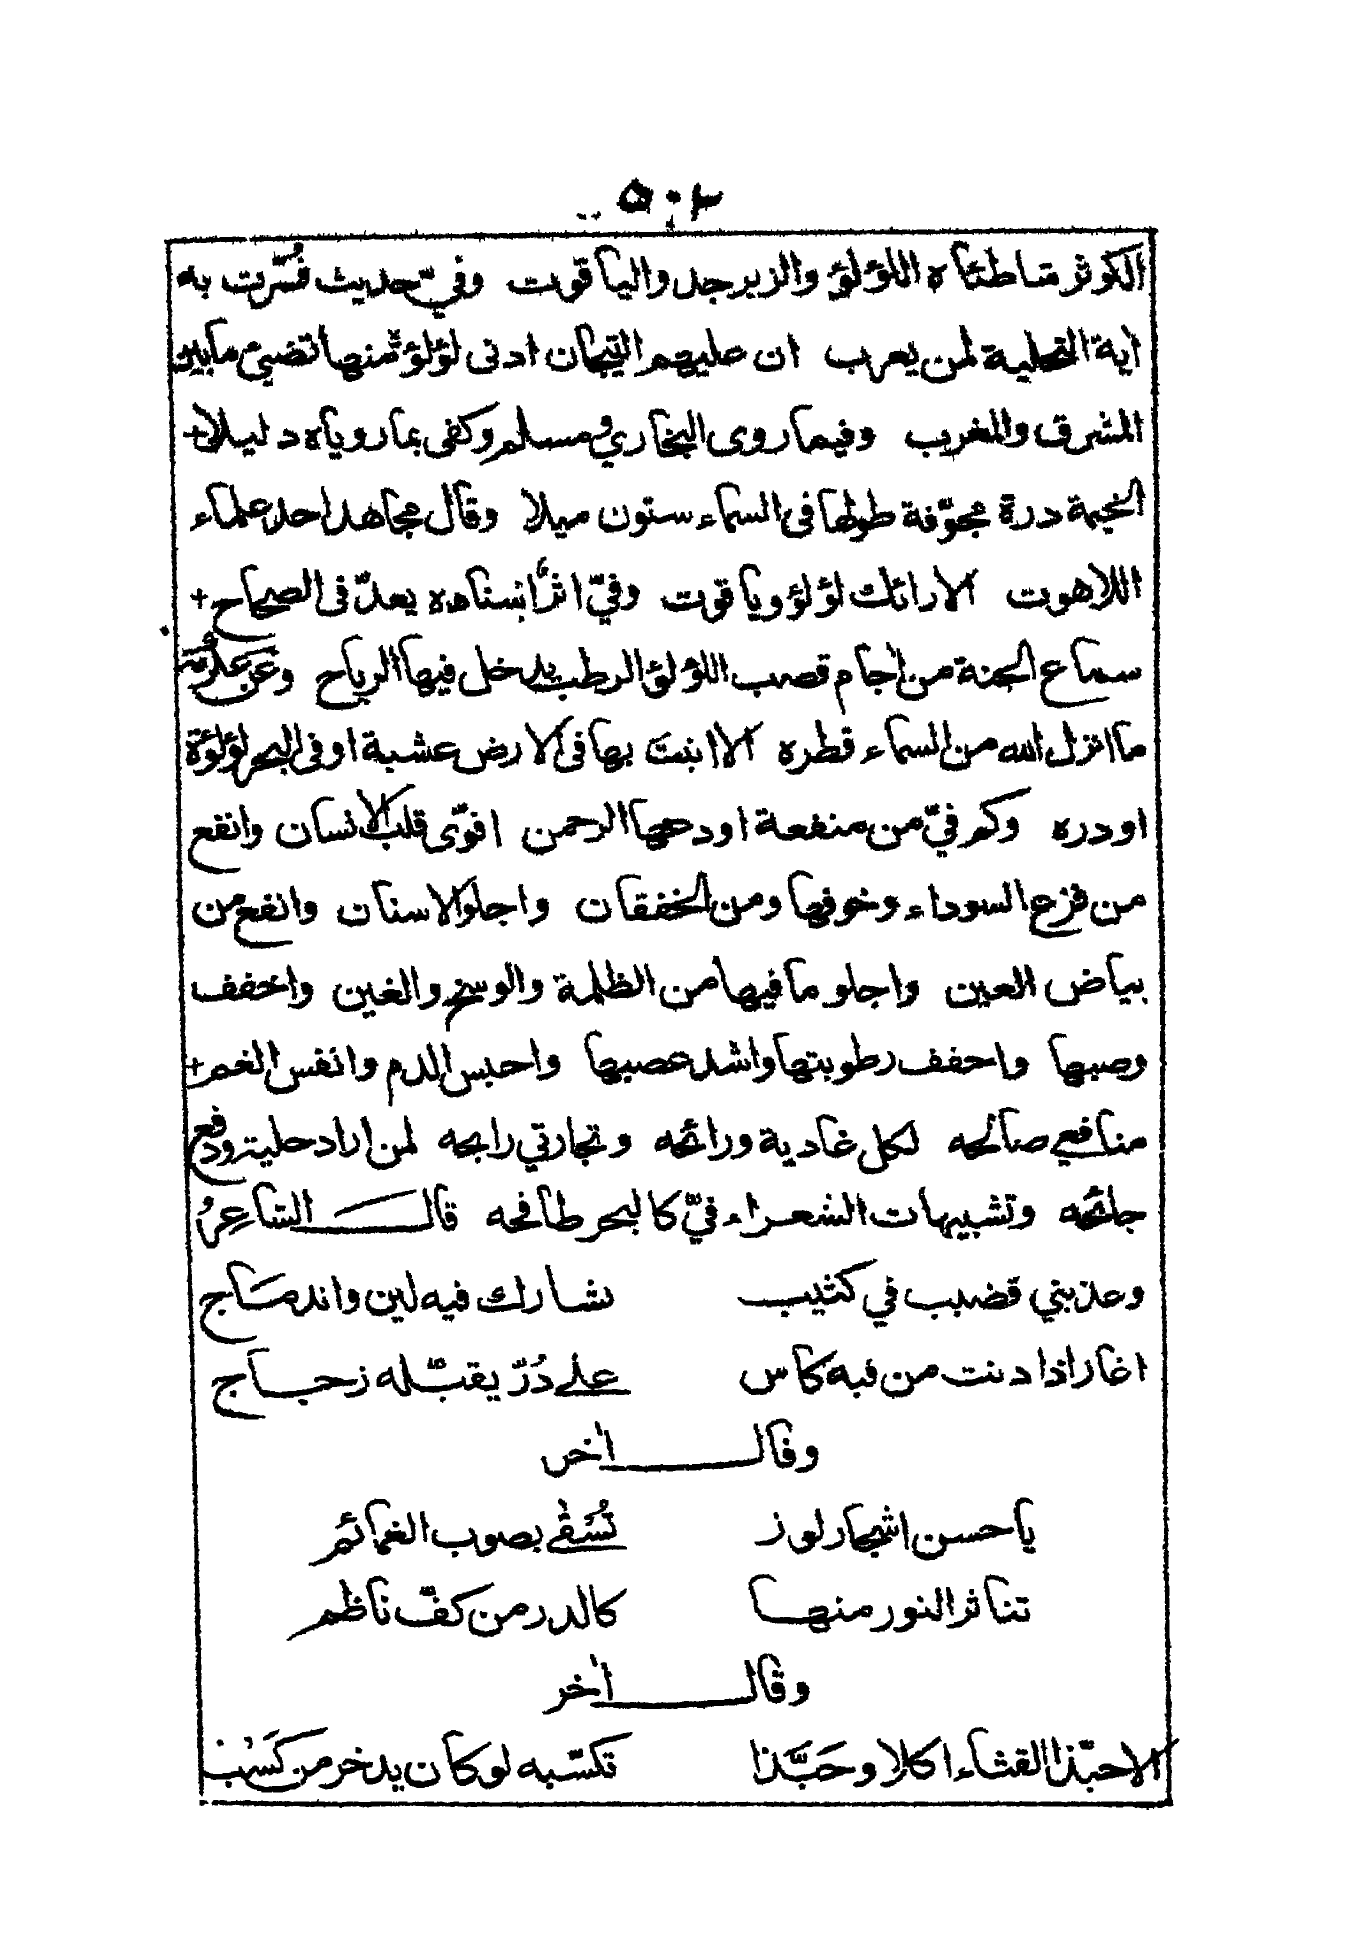 ٥٠٢
الكوثر شاطئاه اللؤلؤ والزبرجد والياقوت وفيّ حديث فُسّرت به
اية التحلية لمن يعرب ان عليهم التيجان ادنى لؤلؤة منها تضيئ مابين
المشرق والمغرب وفيما روى البخاري ومسلم وكفى بما روياه دليلا
الخيمة درة مجوّفة طولها فى السماء ستون ميلا وقال مجاهد احد علماء
اللاهوت الارائك لؤلؤ وياقوت وفيّ اثرٌ اسناده يعدّ فى الصحاح
سماع الجنة من اجام قصب اللؤلؤ الرطب يدخل فيها الرياح وعن عكرمة
ما انزل الله من السماء قطره الا انبتَ بها فى الارض عشبة او فى البحر لؤلؤة
او دره وكم فيّ من منفعة اودعها الرحمن اقوّى قلب الانسان وانفع
من فزع السوداء وخوفها ومن الخفقان واجلو الاسنان وانفع من
بياض العين واجلو ما فيها من الظلمة والوسخ والغين واخفف
وصبها واجفف رطوبتها واشد عصبها واحبس الدم وانفس الغم
منافعي صالحه لكل غادية ورائحه وتجارتي رابحه لمن اراد حليته ودفع
جائحه وتشبيهات الشعراء فيّ كالبحر طافحه قال الشاعرُ
وعذبني قضيب في كثيب تشارك فيه لين واندماج
اغار اذا دنت من فيه كاس على دُرّ يقبّله زجاج
وقال اخر
يا حسن اشجار لوز تُسْقى بصوب الغمائم
تناثر النور منها كالدر من كفّ ناظم
وقال اخر
الاحبّذا القثاء اكلا وحَبَّذا تكسّبه لو كان يدخر من كَسَب